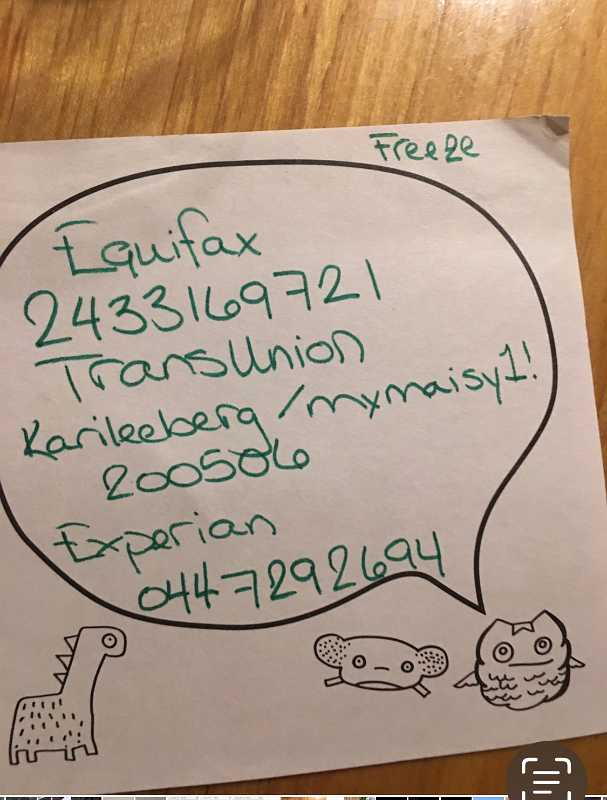 Freeze
Equifax
2433169721
TransUnion
Karileeberg/mxmaisy1!
200506
Experian
0447292694